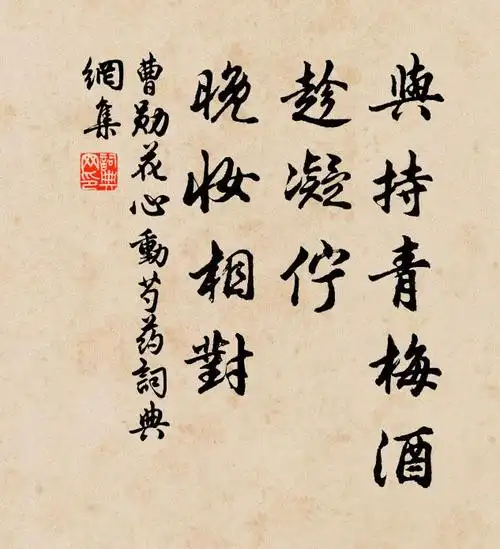 與持青梅酒
趁凝佇
晚妝相對
曹勛花心動芍药詞典
網集
詞典网印